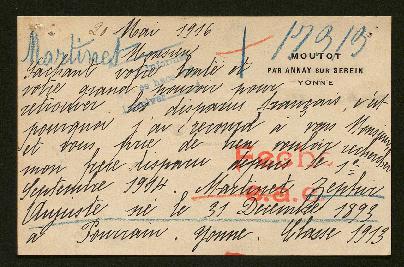 20 Mai 1916
Martinet
17313
Monsieur
MOUTOT
PAR ANNAY SUR SEREIN
YONNE
Sachant votre bonté et
votre grand pouvoir pour
retrouver disparus français, c'est
pourquoi j'ai recours à vous Monsieur
et vous prie de me vouloir rechercher
mon fils disparu depuis le 1er
Septembre 1914. Martinet
Auguste né le 31 Décembre 1892
à Pourrain. Yonne. Classe 1913
Rech.
s.a.c